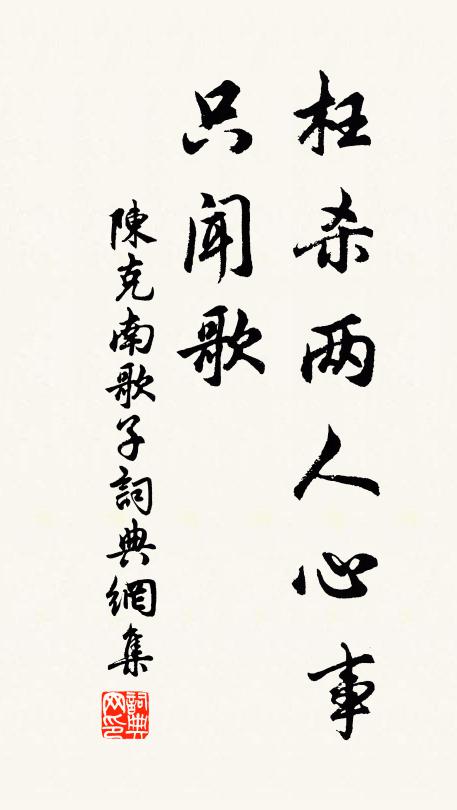 枉杀两人心事
只闻歌
陳克南歌子詞典網集
詞典网印